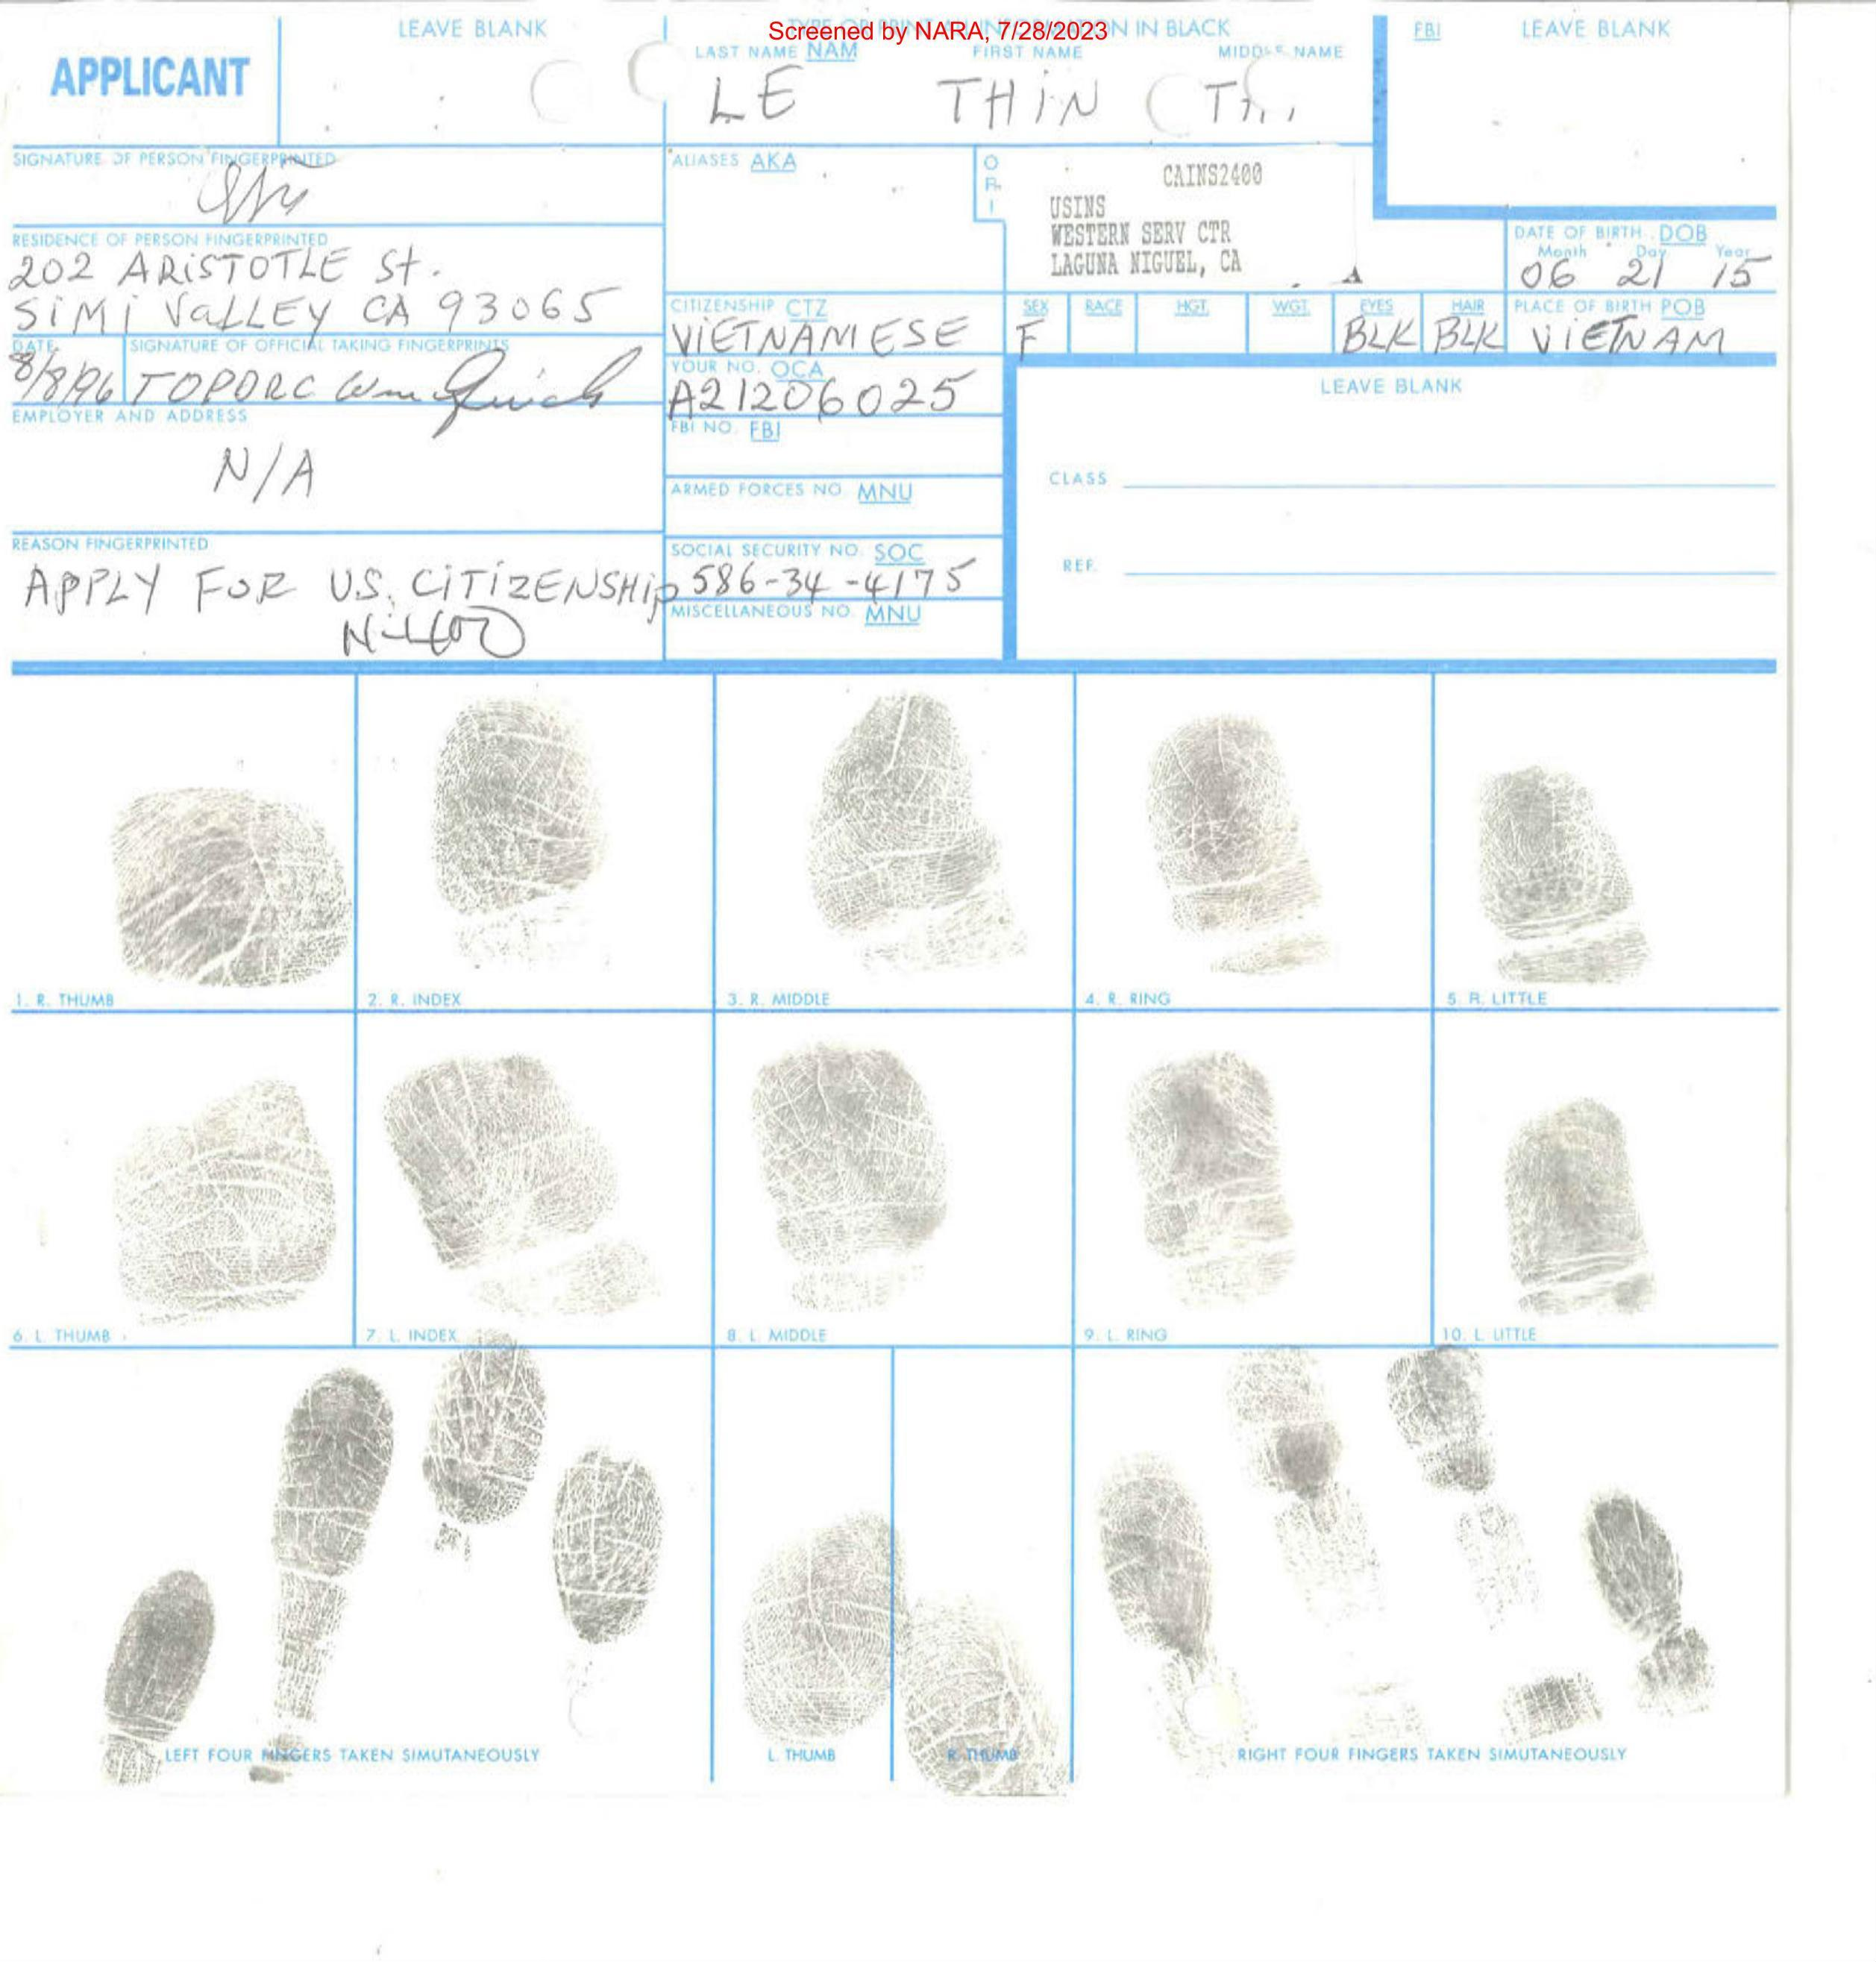 Screened by NARA, 7/28/2023
APPLICANT
LEAVE BLANK
LAST NAME NAM
FIRST NAME
MIDDLE NAME
LE THiN
FBI LEAVE BLANK
SIGNATURE OF PERSON FINGERPRINTED
ALIASES AKA
ORI
CAINS2400
USINS
WESTERN SERV CTR
LAGUNA NIGUEL, CA
A
RESIDENCE OF PERSON FINGERPRINTED
202 ARiSTOTLE St.
SiMi VaLLEY CA 93065
DATE OF BIRTH DOB
Month Day Year
06 21 15
CITIZENSHIP CTZ
ViETNAMESE
SEX
F
RACE
HGT.
WGT.
EYES
BLK
HAIR
BLK
PLACE OF BIRTH POB
ViETNAM
DATE
8/8/96
SIGNATURE OF OFFICIAL TAKING FINGERPRINTS
YOUR NO. OCA
A21206025
LEAVE BLANK
EMPLOYER AND ADDRESS
N/A
FBI NO. FBI
CLASS
ARMED FORCES NO. MNU
REASON FINGERPRINTED
APPLY FOR U.S. CiTiZENSHip
N-400
SOCIAL SECURITY NO. SOC
586-34-4175
REF.
MISCELLANEOUS NO. MNU
1. R. THUMB
2. R. INDEX
3. R. MIDDLE
4. R. RING
5. R. LITTLE
6. L. THUMB
7. L. INDEX
8. L. MIDDLE
9. L. RING
10. L. LITTLE
LEFT FOUR FINGERS TAKEN SIMUTANEOUSLY
L. THUMB
R. THUMB
RIGHT FOUR FINGERS TAKEN SIMUTANEOUSLY